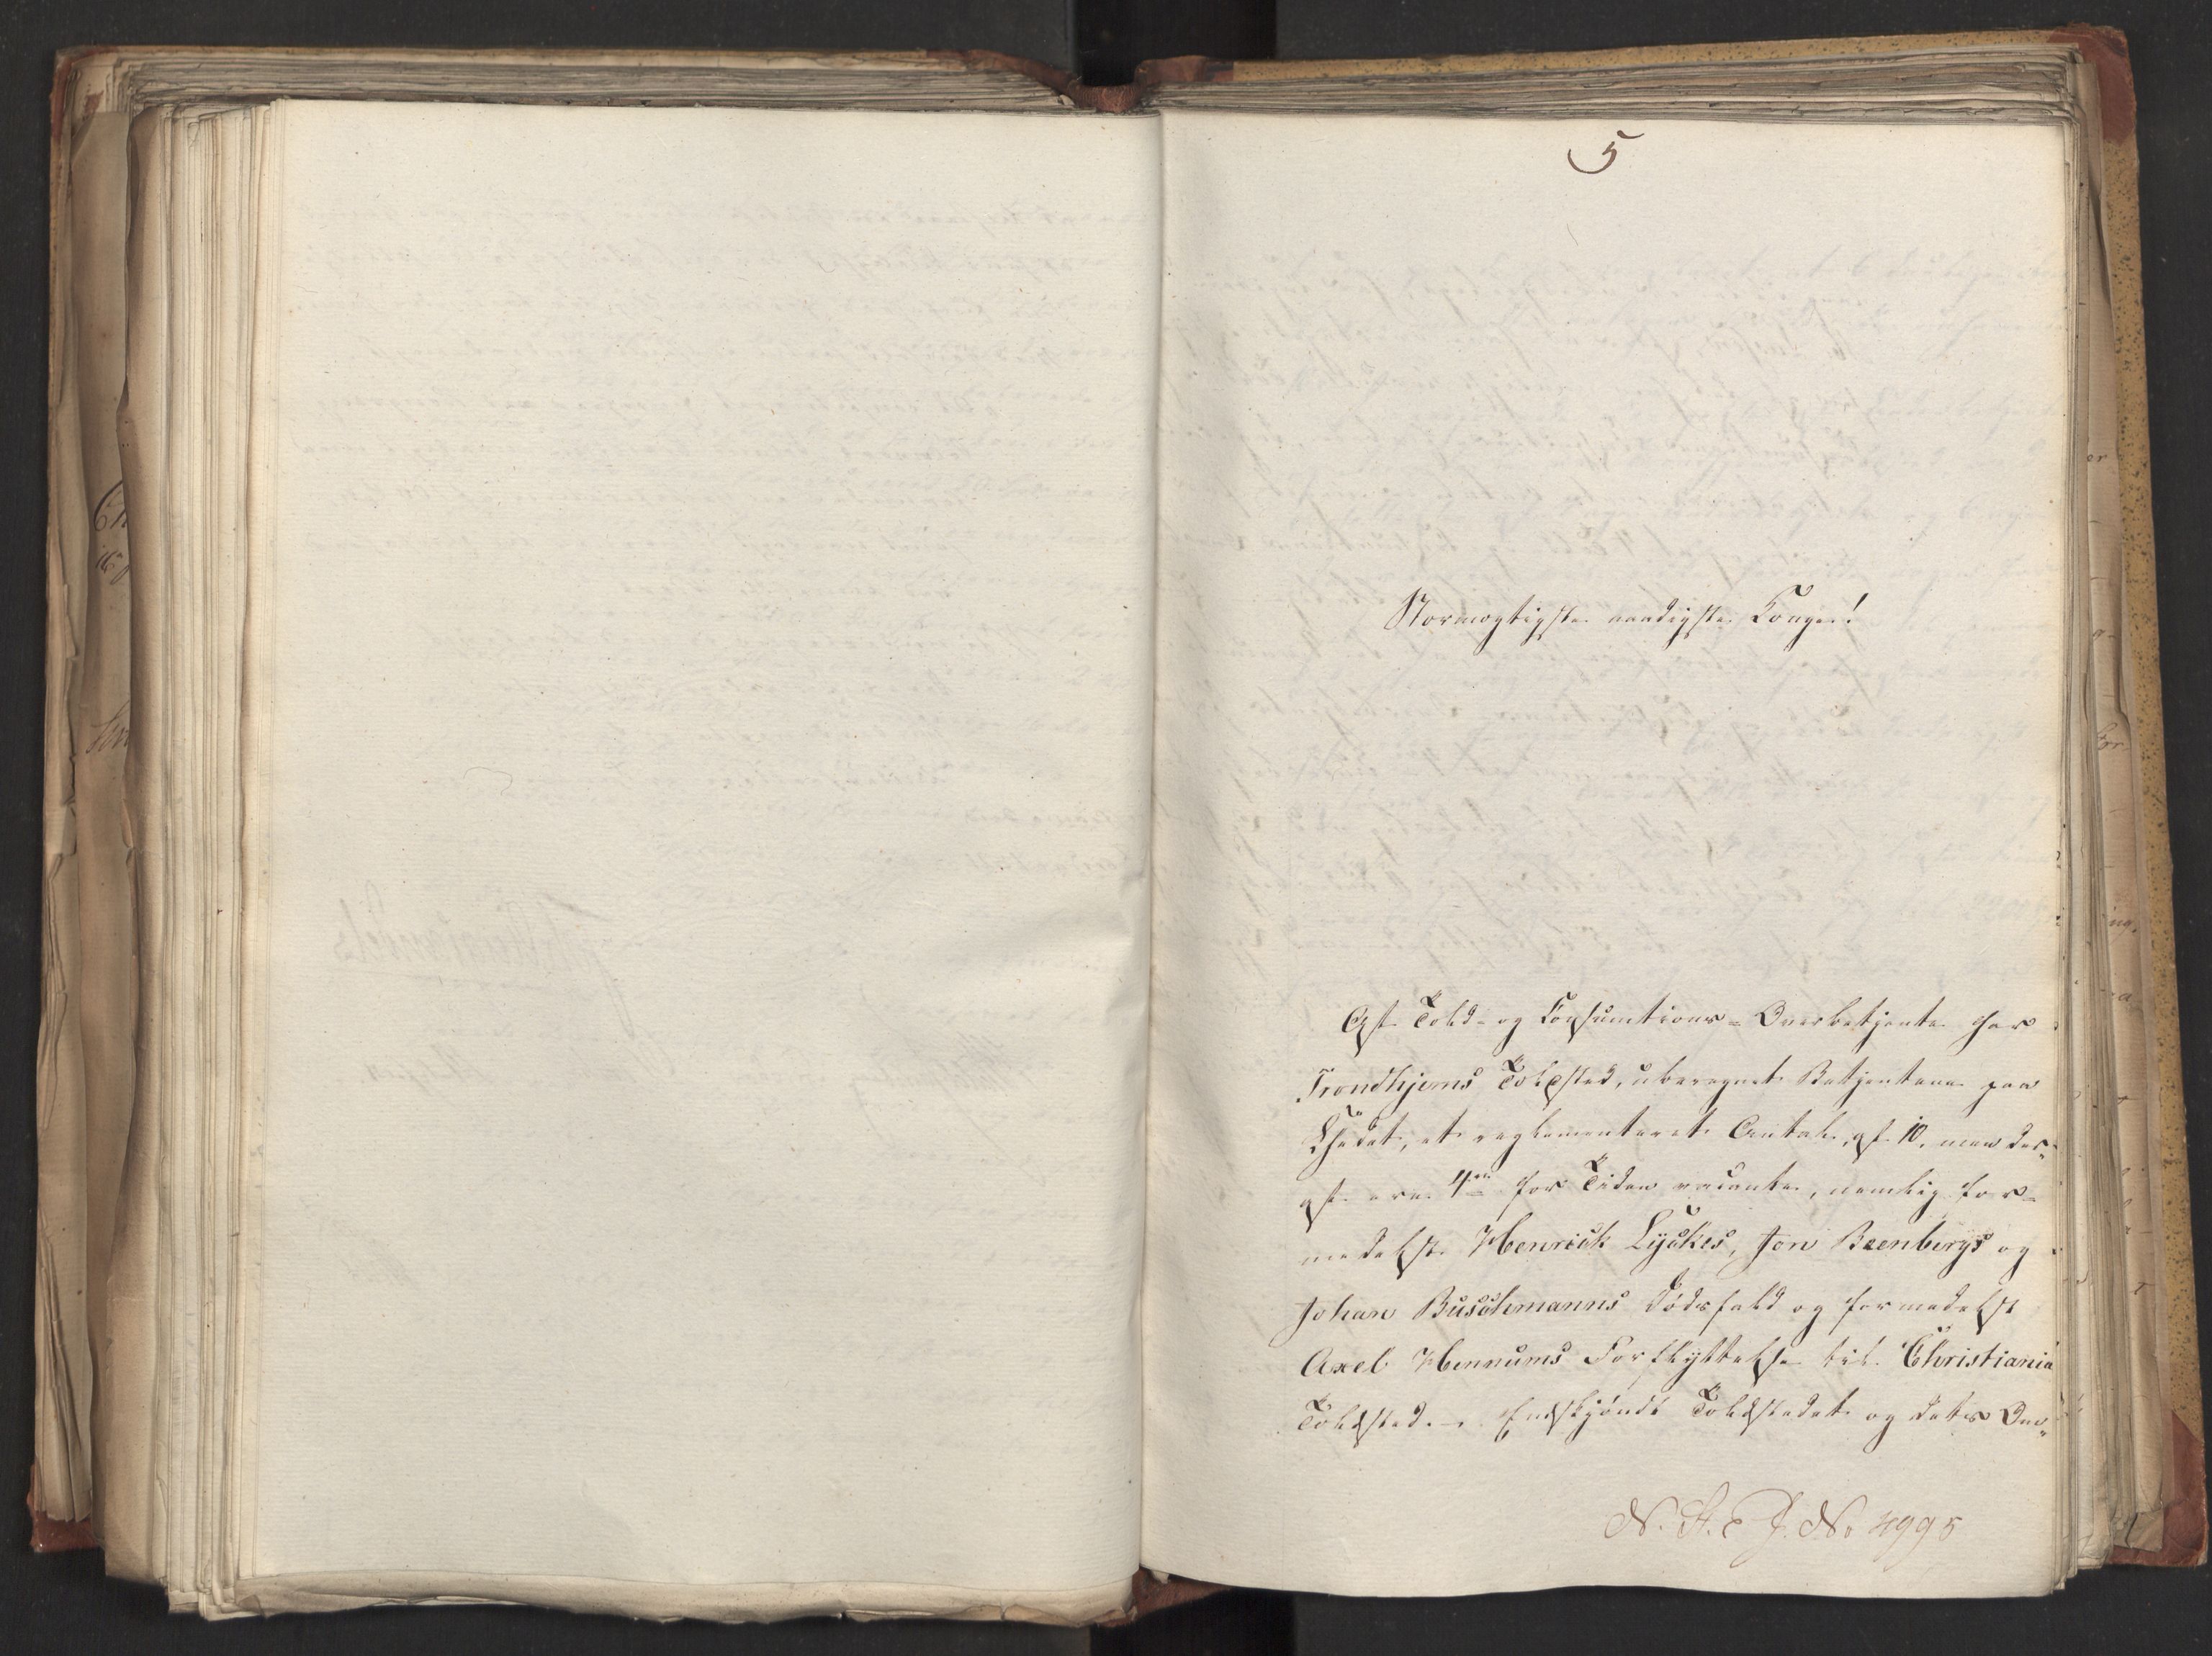 5
Stormægtigste naadigste Konge!
Af Told- og Consumtions-Overbetjente har
Trondhjems Toldsted, uberegnet Betjentene paa
et reglementeret Antal af 10. men der-
af ere 4re for Tiden vacante, nemlig for-
medelst Henrick Lyckes, Jon Beenbergs og
Johan Buschmanns Dödsfald og formedelst
Axel Hennums Forflyttelse til Christiania
Toldsted. Endskjöndt Toldstedet og dets Om-
N. S. E J. No 4995